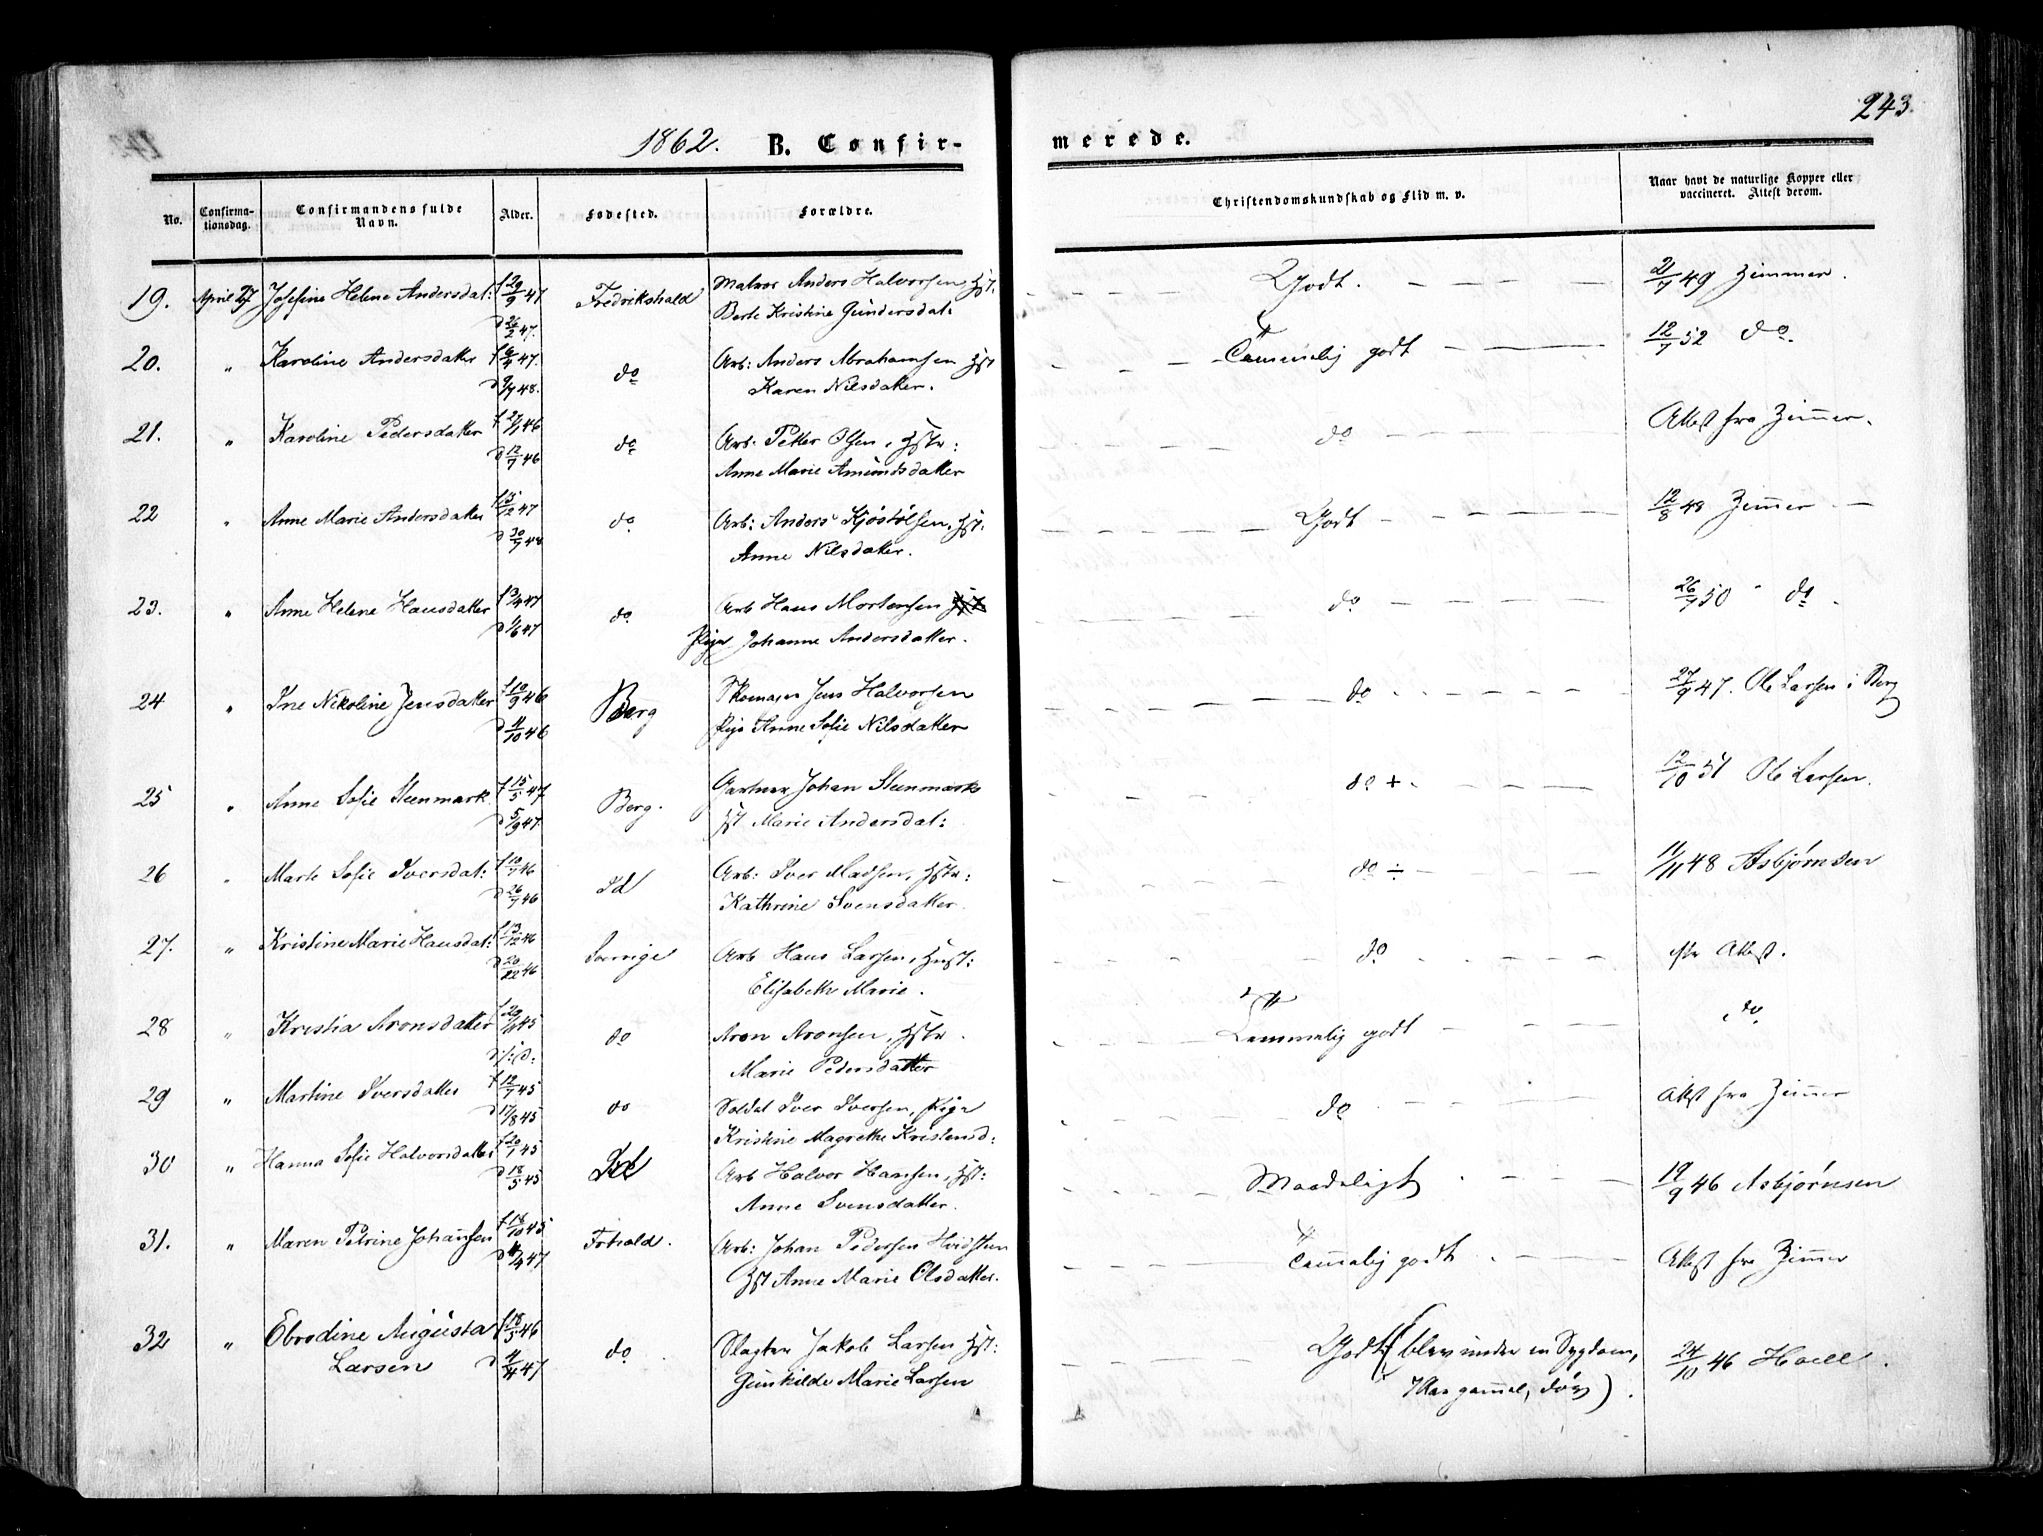 243.
1862. B. Confir-
merede.
No. Confirma-tionsdag. Confirmandens fulde Navn. Alder. Fødested. Forældre. Christendomskundskab og Flid m. v. Naar havt de naturlige Kopper eller vaccineret. Attest derom.
19. April 27 Josefine Helene Andersdat: f 29/9 47 Fredrikshald Matros Anders Halvorsen, Hst. Godt. 2/7 49 Zimmer.
Berte Kristine Gundersdat:
d 26/2 47.
20. " Karoline Andersdatter f 6/4 47. do Arb: Anders Abrahamsen Hst Temmelig godt 12/7 52 do.
d 9/4 48. Karen Nilsdatter.
21. " Karoline Pedersdatter f 27/1 46 do Arb. Petter Olsen, Hstr: do Attest fra Zimmer.
d 12/7 46 Anne Marie Amundsdatter
22 " Anne Marie Andersdatter f 15/12 47 do Arb: Anders Kjøstolsen, Hst. Godt 12/8 48 Zimmer
d 30/7 48 Anne Nilsdatter.
23. " Anne Helene Hansdatter f 3/4 47 do Arb Hans Mortensen do 26/7 50 do.
d 1/6 47 Pige Johanne Andersdatter.
24 " Ine Nikoline Jensdatter f 10/9 46 Berg Skomager Jens Halvorsen do 27/9 47. Ole Larsen i Berg
d 4/10 46 Pige Anne Sofie Nilsdatter
25 " Anne Sofie Steenmark f 15/5 47 Berg. Gartner Johan Steenmark do + 12/10 51 Ole Larsen.
d 5/9 47. Hst Marie Andersdat:
26 " Marte Sofie Iversdat: f 10/7 46 Id Arb: Iver Madsen, Hstr: do ÷ 11/11 48 Asbjørnsen
d 26/7 46 Kathrine Svensdatter.
27. " Kristine Marie Hansdat: f 13/12 46 Sverrige Arb Hans Larsen, Hust: do Attest.
d 20/12 46 Elisabeth Marie.
28 " Kristia Aronsdatter 45 do Aron Aronsen, Hstr. Temmelig godt do
Marie Pedersdatter
29 " Martine Iversdatter f 12/7 45 do Soldat Iver Iversen, Pige do Attest fra Zimmer
d 17/8 45 Kristine Magrethe Kristensd:
30 " Hanna Sofie Halvorsdatter f 20/1 45 Id Arb Halvor Hansen, Hst: Maadeligt 19/9 46 Asbjørnsen
d 18/5 45 Anne Svensdatter.
31. " Maren Petrine Johansen f 18/10 45 Frhald. Arb: Johan Pedersen Hvidsteen Temmelig godt Attest fra Zimmer
d 4/4 47 Hst Anne Marie Olsdatter.
32 " Ebrodine Augusta f 18/5 46 do Slagter Jakob Larsen Hst: Godt (blev under en Sygdom, 24/10 46 Hoell.
Larsen d 4/4 47 Gunhilde Marie Larsen 7 Aar gammel, døv).